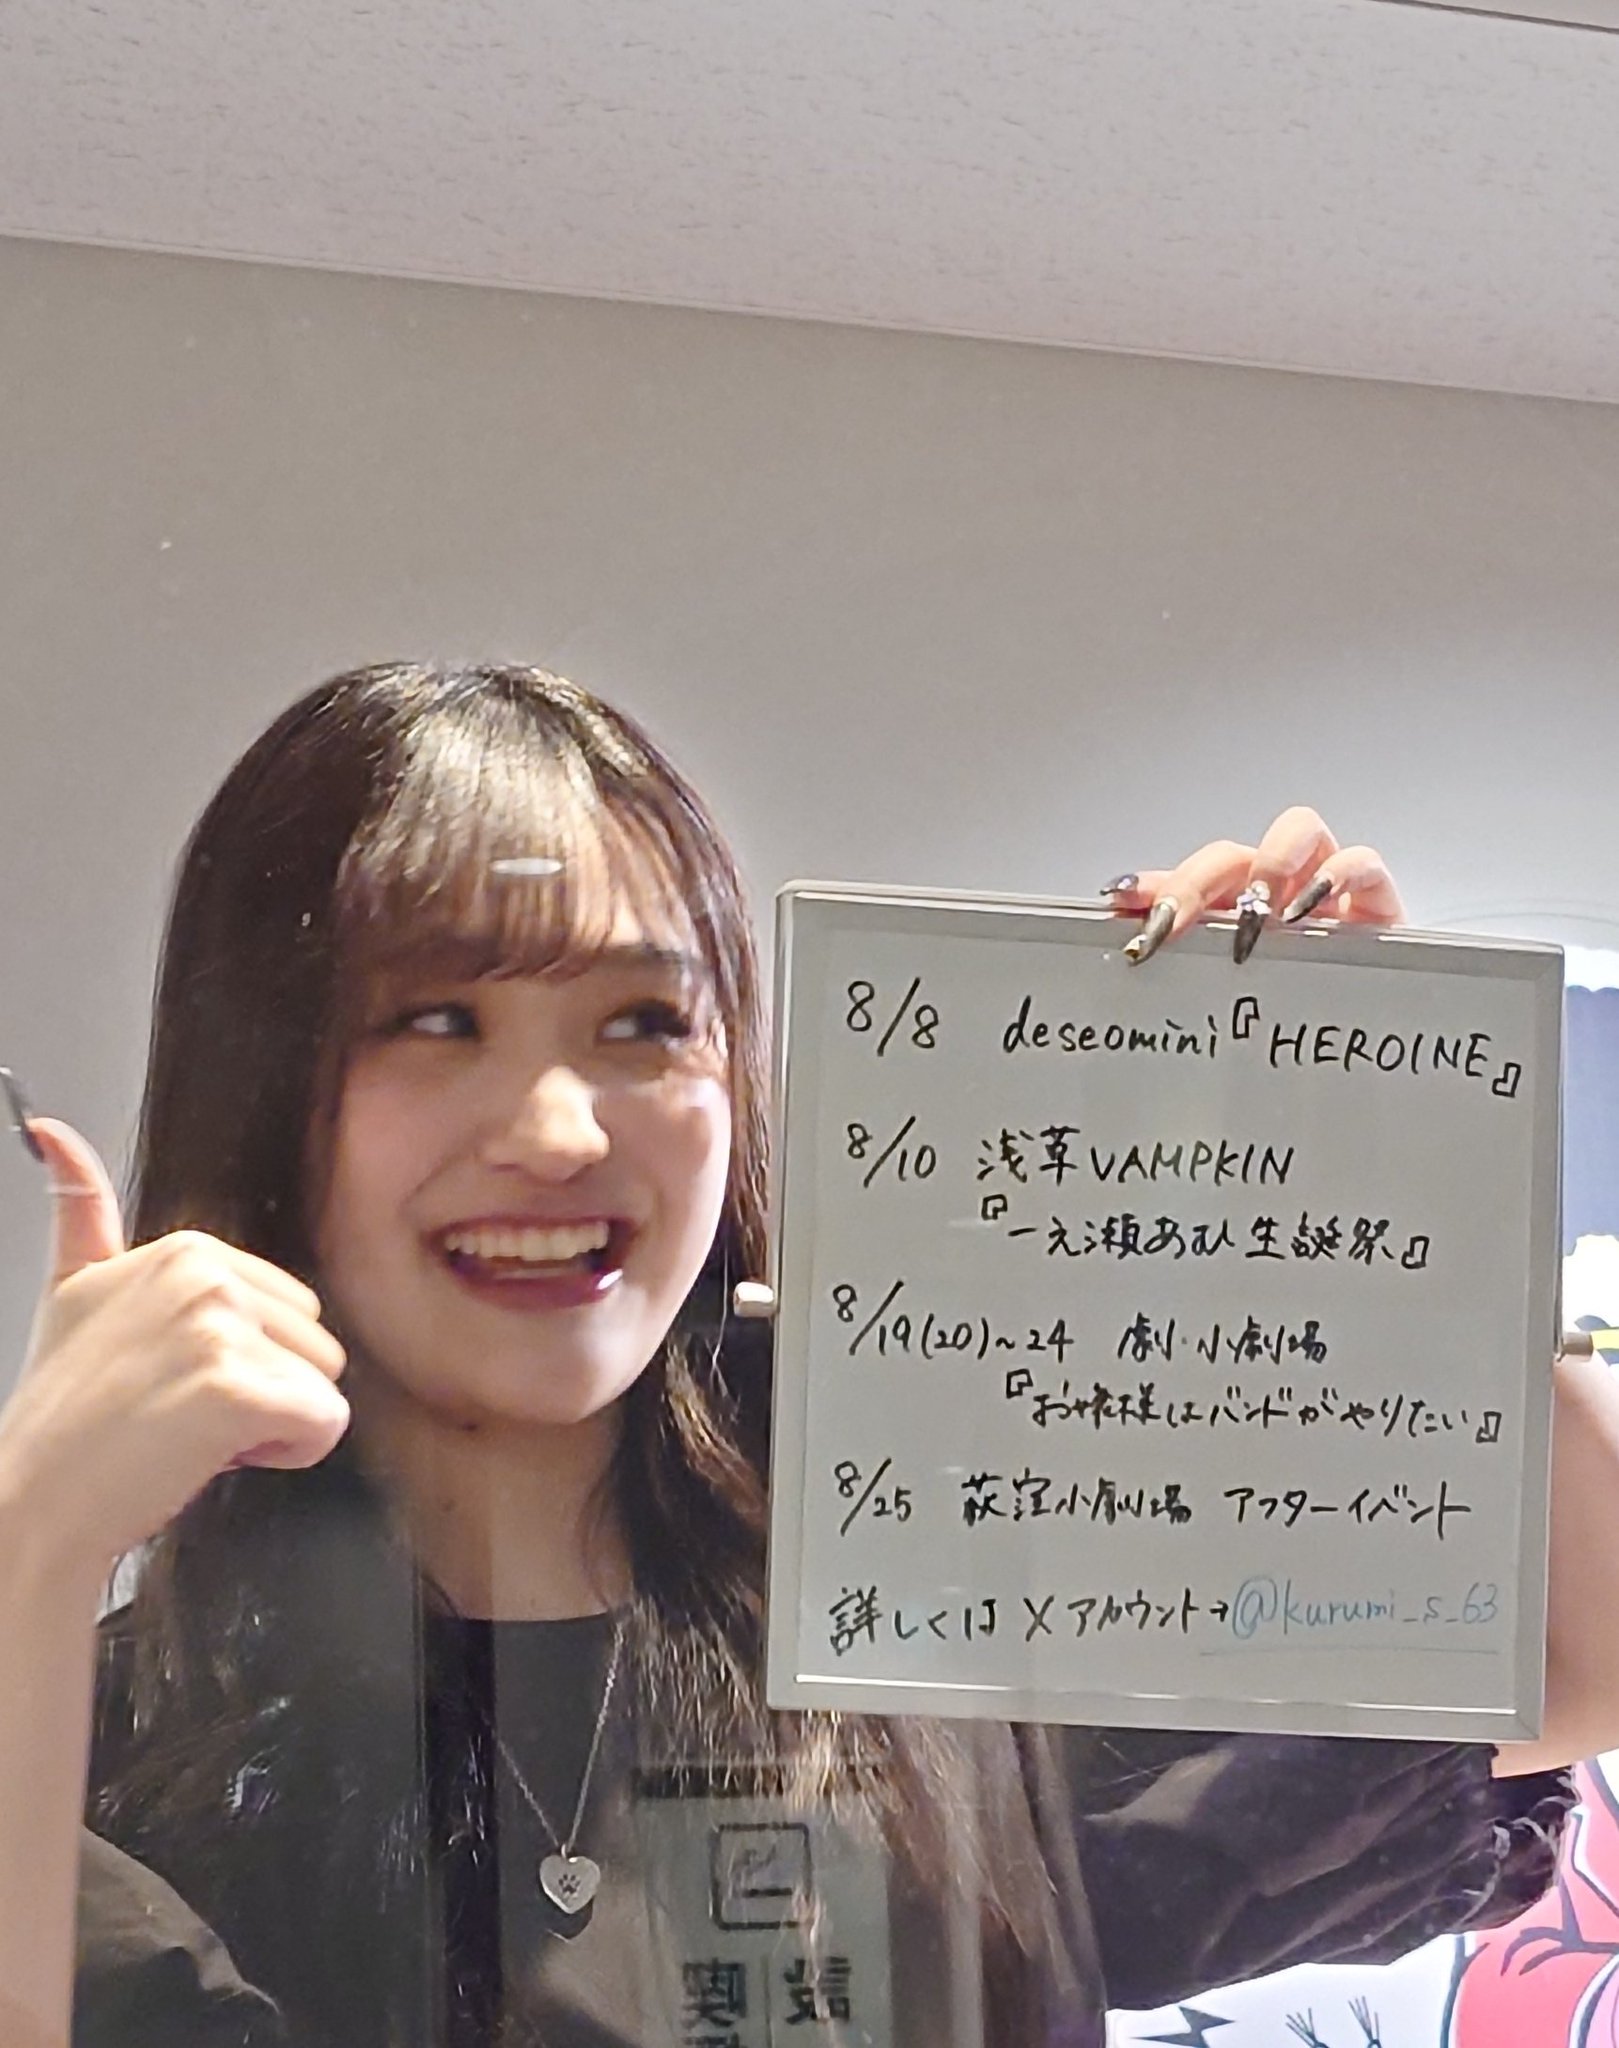 8/8 deseomini『HEROINE』
8/10 浅草VAMPKIN
『一之瀬あむ生誕祭』
8/19(20)~24 劇・小劇場
『お嬢様はバンドがやりたい』
8/25 荻窪小劇場 アフターイベント
詳しくは X アカウント→@kurumi_s_63